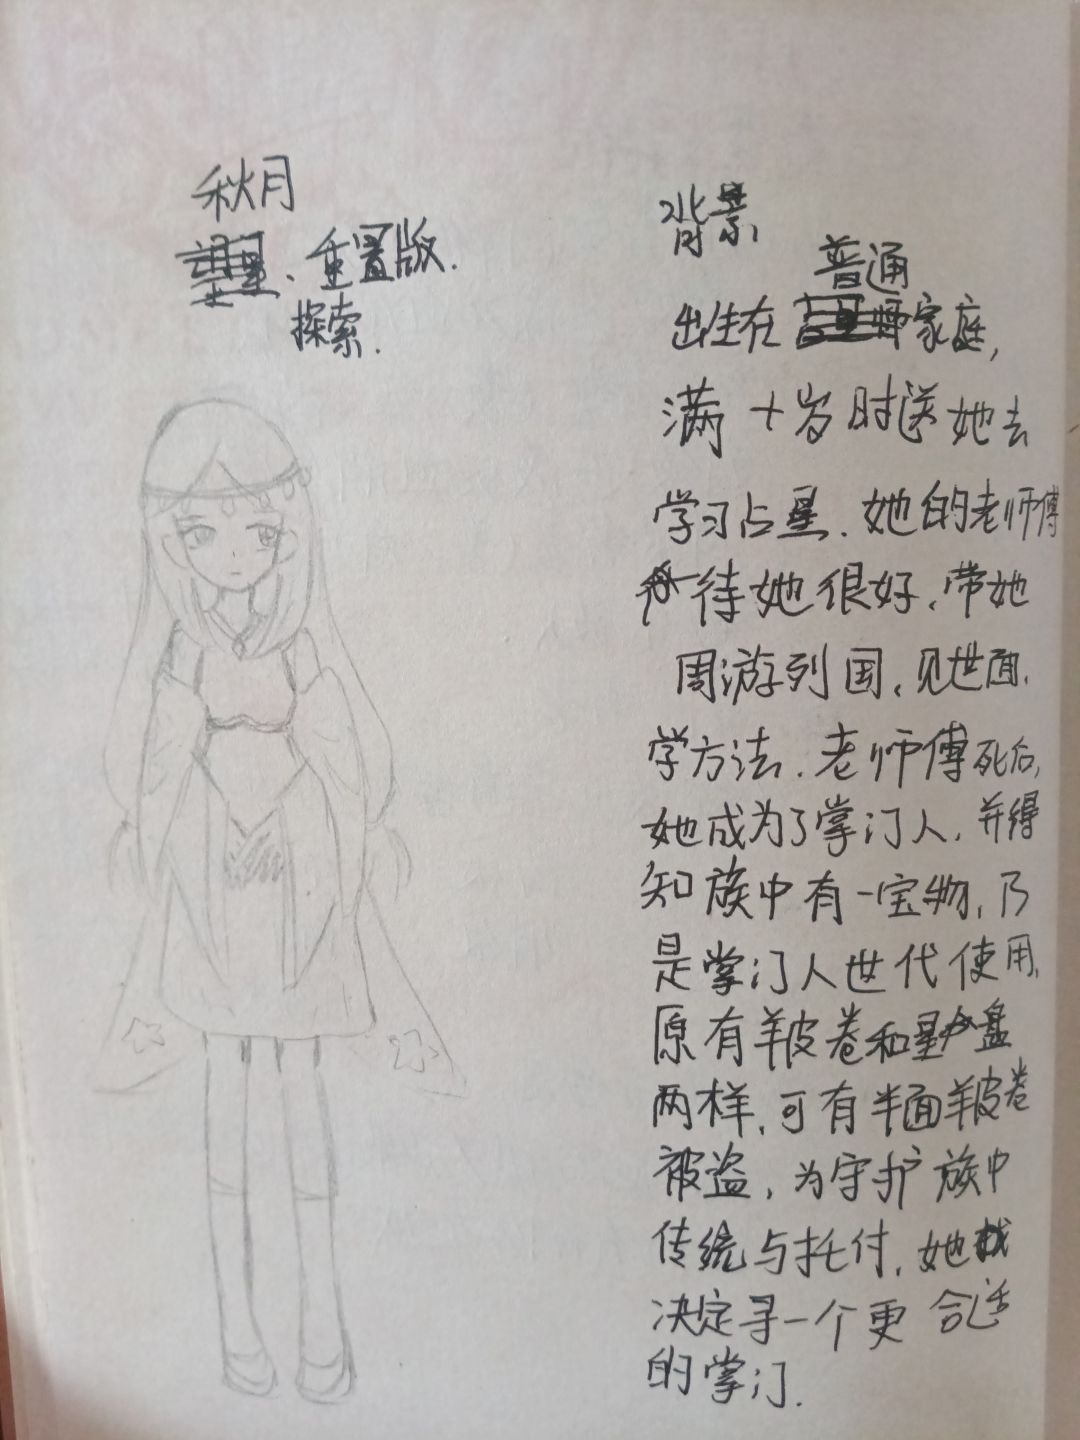 秋月
重置版.
探索.
背景
普通
出生在 家庭,
满十岁时送她去
学习占星.她的老师傅
待她很好、带她
周游列国、见世面.
学方法.老师傅死后,
她成为了掌门人.并得
知族中有一宝物,乃
是掌门人世代使用.
原有羊皮卷和星盘
两样,可有半面羊皮卷
被盗,为守护族中
传统与托付,她
决定寻一个更合适
的掌门.